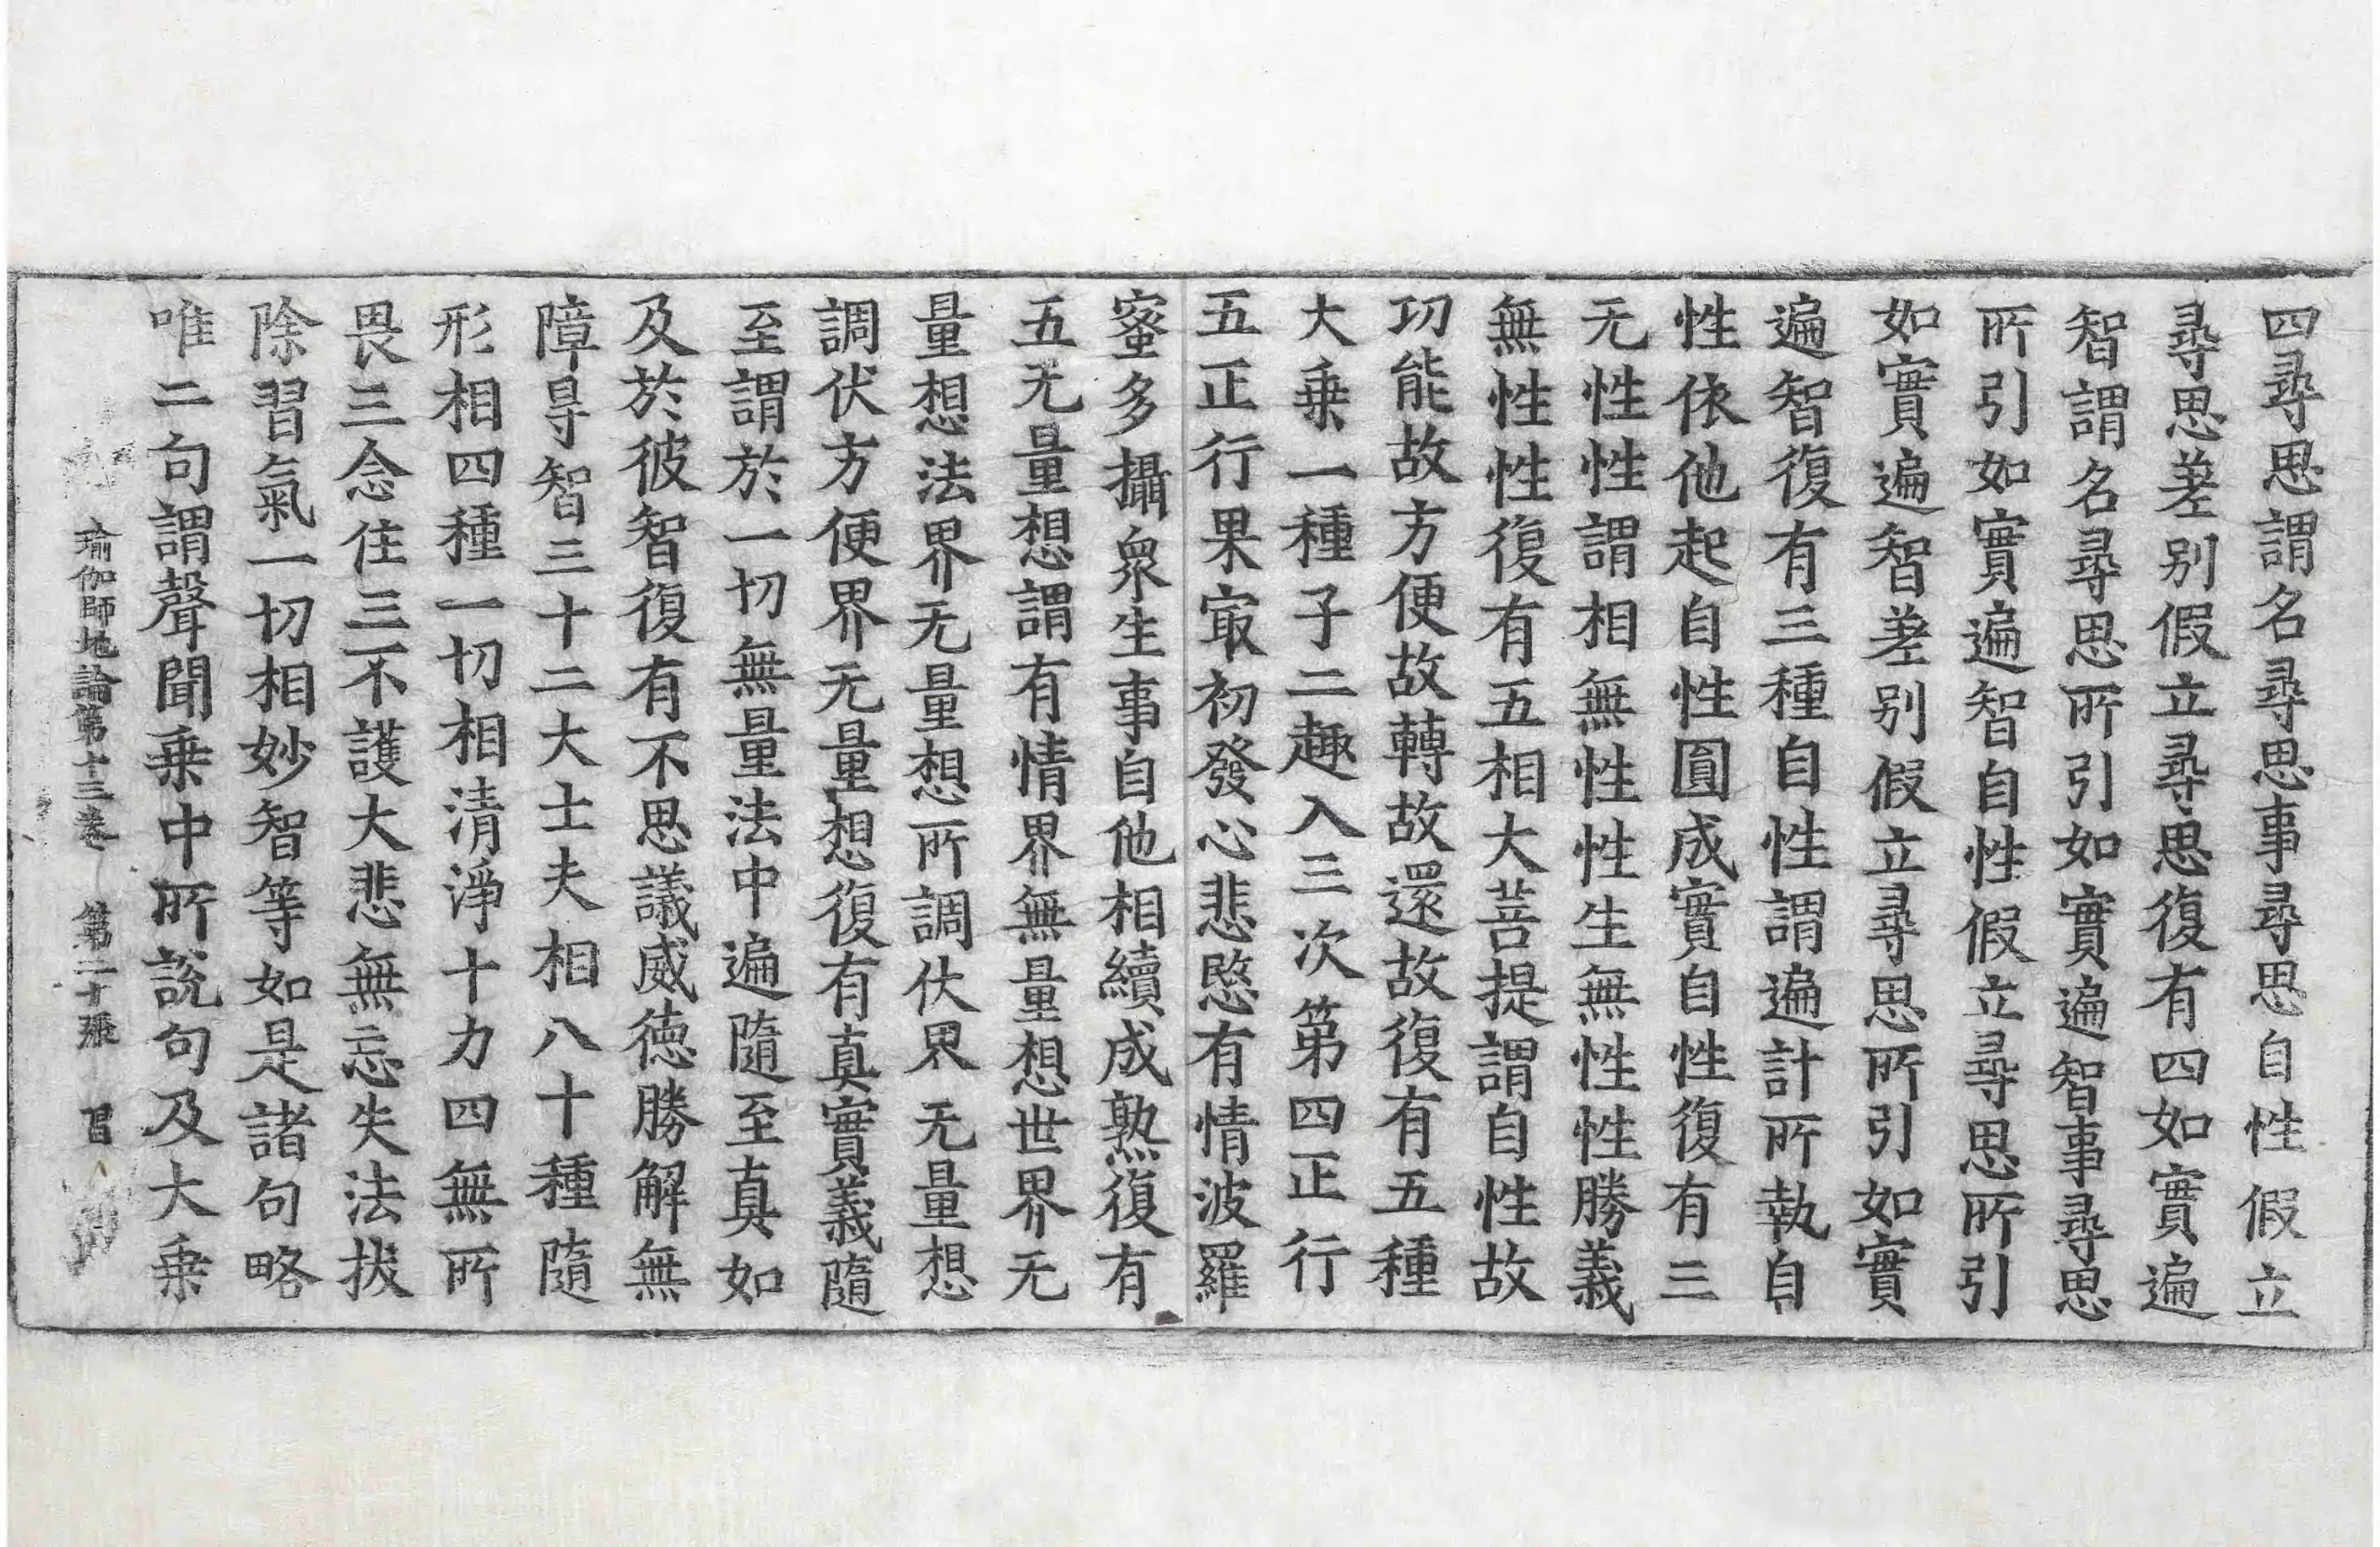 四尋思謂名尋思事尋思自性假立
尋思差别假立尋思復有四如實遍
智謂名尋思所引如實遍智事尋思
所引如實遍智自性假立尋思所引
如實遍智差别假立尋思所引如實
遍智復有三種自性謂遍計所執自
性依他起自性圓成實自性復有三
无性性謂相無性性生無性性勝義
無性性復有五相大菩提謂自性故
功能故方便故轉故還故復有五種
大乗一種子二趣入三次第四正行
五正行果㝡初發心悲愍有情波羅
蜜多攝衆生事自他相續成熟復有
五无量想謂有情界無量想世界无
量想法界无量想所調伏界无量想
調伏方便界无量想復有真實義隨
至謂於一切無量法中遍隨至真如
及於彼智復有不思議威徳勝解無
障㝵智三十二大士夫相八十種隨
形相四種一切相清淨十力四無所
畏三念住三不護大悲無忘失法拔
除習氣一切相妙智等如是諸句略
唯二句謂聲聞乗中所說句及大乗
瑜伽師地論第十三卷 第二十張 昌